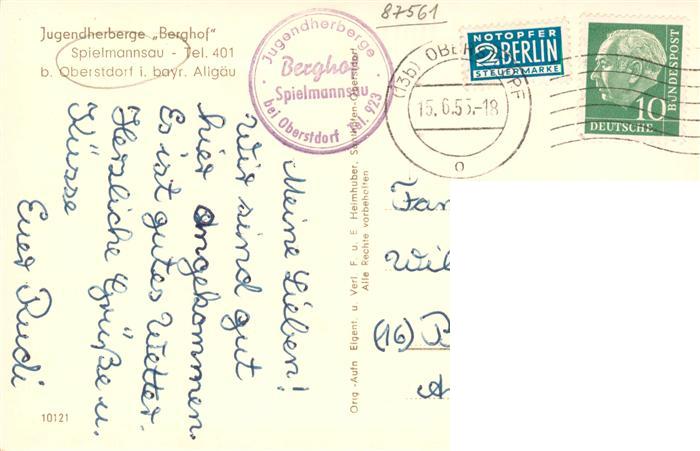 Jugendherberge „Berghof"
Spielmannsau - Tel. 401
b. Oberstdorf i. bayr. Allgäu
Jugendherberge
Berghof
Spielmannsau
bei Oberstdorf Tel. 923
87561
(13b) OBERSTDORF
15.6.55.-18
o
NOTOPFER
2 BERLIN
STEUERMARKE
10
DEUTSCHE
BUNDESPOST
Meine Lieben!
Wir sind gut
hier angekommen.
Es ist gutes Wetter.
Herzliche Grüße u.
Küsse
Euer Rudi
Orig.-Aufn Eigent. u. Verl. F. u. E. Heimhuber, Sonthofen-Oberstdorf
Alle Rechte vorbehalten
Fam
Wil
(16)
10121